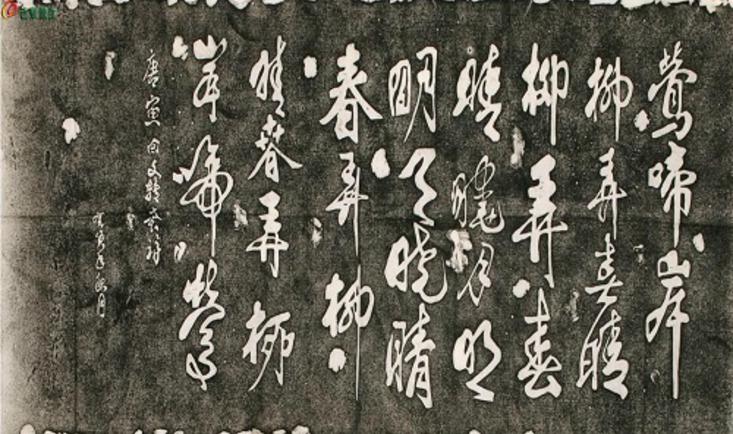 鶯啼岸
柳弄春晴
柳弄春
晴曉月明
明月曉晴
春弄柳
晴春弄柳
岸啼鶯
唐寅回文